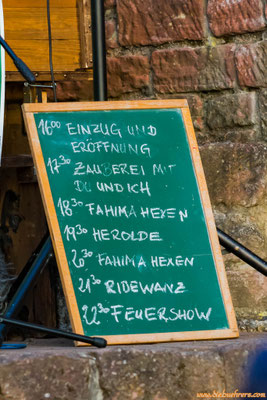 16⁰⁰ EINZUG UND
ERÖFFNUNG
17³⁰ ZAUBEREI MIT
DU UND ICH
18³⁰ FAHIMA HEXEN
19³⁰ HEROLDE
20³⁰ FAHIMA HEXEN
21³⁰ RIDEWANZ
22³⁰ FEUERSHOW